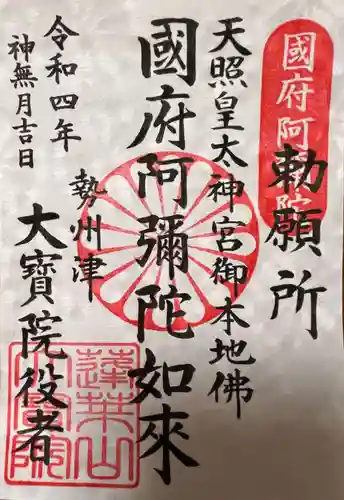 勅願所
國府阿彌陀
天照皇太神宮御本地佛
國府阿彌陀如來
勢州津
大寶院役者
令和四年
神無月吉日